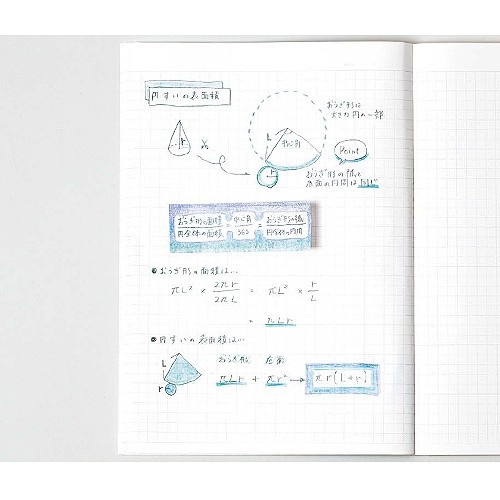 円すいの表面積
おうぎ形は
大きな円の一部
L
中心角
r
Point
おうぎ形の弧と
底面の円周は同じ
おうぎ形の面積 / 円全体の面積 = 中心角 / 360 = おうぎ形の弧 / 円全体の円周
●おうぎ形の面積は…
πL² × 2πr / 2πL = πL² × r / L
= πLr
●円すいの表面積は…
L
r
おうぎ形 底面
πLr + πr² → πr(L+r)